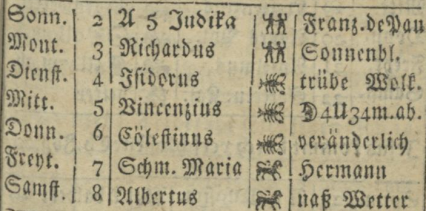 Sonn. 2 A 5 Judika Franz.dePau
Mont. 3 Richardus Sonnenbl.
Dienst. 4 Isidorus trübe Wolk.
Mitt. 5 Vincenzius ☽4U34m.ab.
Donn. 6 Cölestinus veränderlich
Freyt. 7 Schm. Maria Hermann
Samst. 8 Albertus naß Wetter